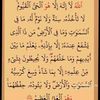 اللَّهُ لَا إِلَٰهَ إِلَّا هُوَ الْحَيُّ الْقَيُّومُ
لَا تَأْخُذُهُ سِنَةٌ وَلَا نَوْمٌ لَهُ مَا فِي
السَّمَاوَاتِ وَمَا فِي الْأَرْضِ مَنْ ذَا الَّذِي
يَشْفَعُ عِنْدَهُ إِلَّا بِإِذْنِهِ يَعْلَمُ مَا بَيْنَ
أَيْدِيهِمْ وَمَا خَلْفَهُمْ وَلَا يُحِيطُونَ بِشَيْءٍ
مِنْ عِلْمِهِ إِلَّا بِمَا شَاءَ وَسِعَ كُرْسِيُّهُ
السَّمَاوَاتِ وَالْأَرْضَ وَلَا يَئُودُهُ